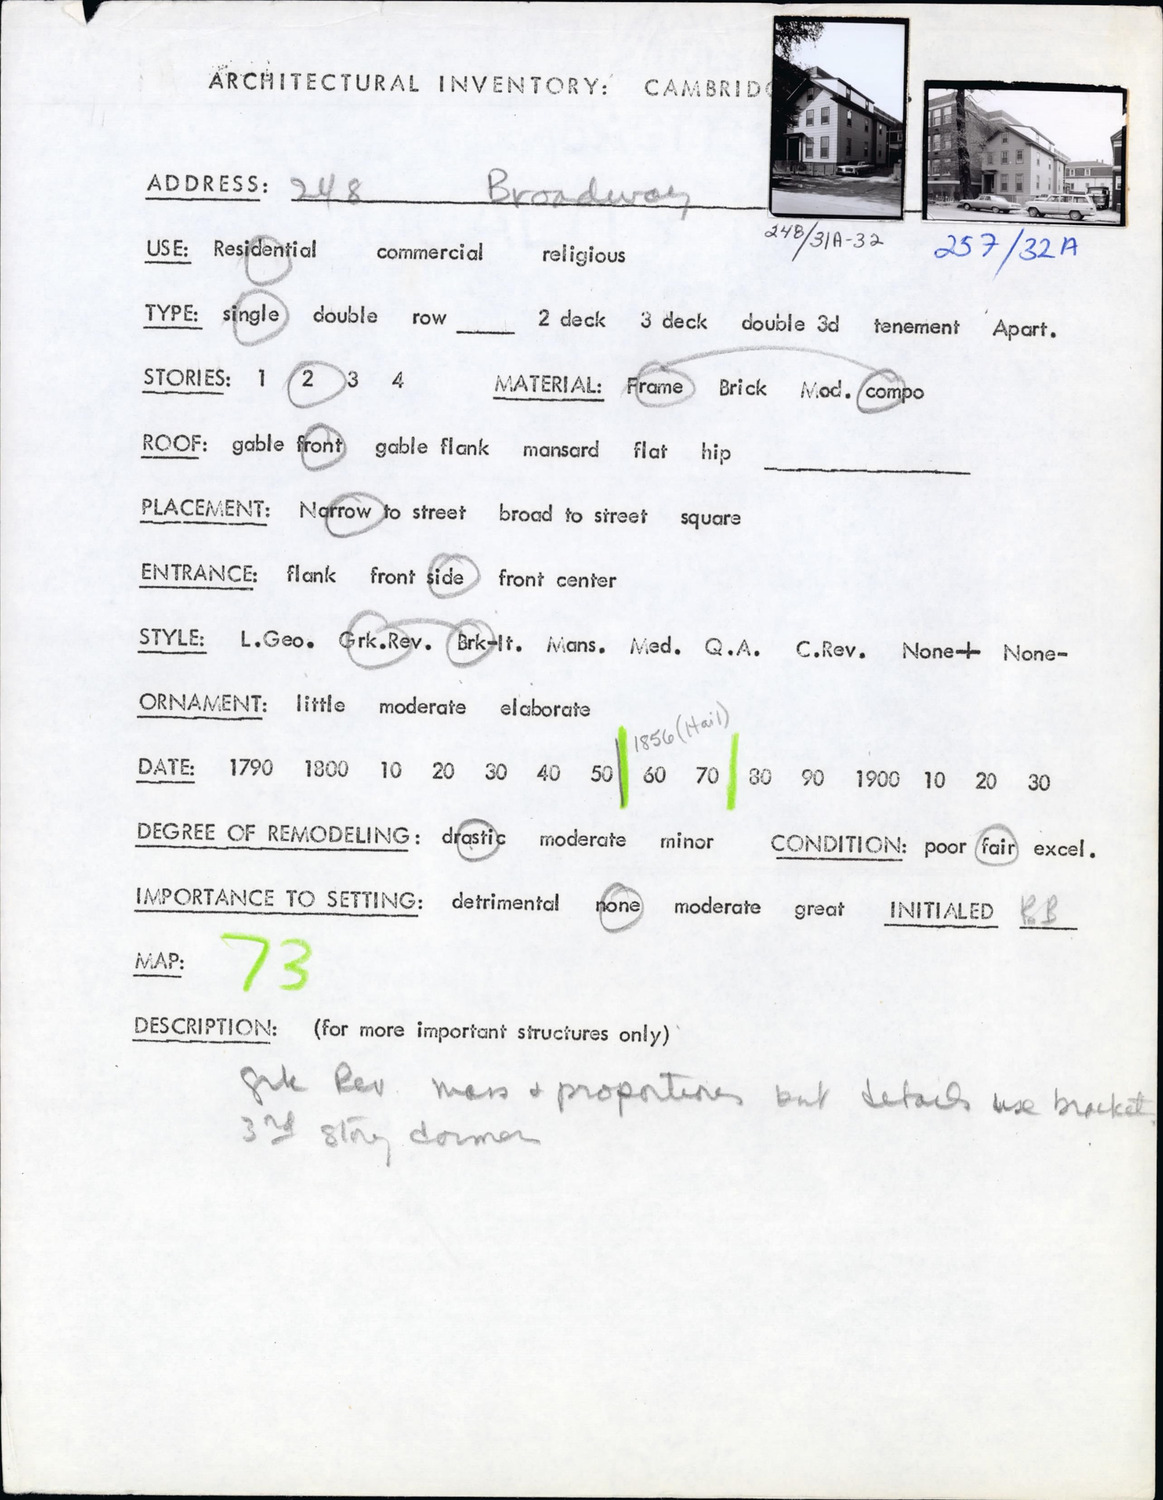 ARCHITECTURAL INVENTORY: CAMBRIDG
ADDRESS: 248 Broadway
248/31A-32
257/32A
USE: Residential commercial religious
TYPE: single double row ____ 2 deck 3 deck double 3d tenement Apart.
STORIES: 1 2 3 4 MATERIAL: Frame Brick Mod. compo
ROOF: gable front gable flank mansard flat hip
PLACEMENT: Narrow to street broad to street square
ENTRANCE: flank front side front center
STYLE: L.Geo. Grk.Rev. Brk-It. Mans. Med. Q.A. C.Rev. None+ None-
ORNAMENT: little moderate elaborate
1856 (Hail)
DATE: 1790 1800 10 20 30 40 50 60 70 80 90 1900 10 20 30
DEGREE OF REMODELING: drastic moderate minor CONDITION: poor fair excel.
IMPORTANCE TO SETTING: detrimental none moderate great INITIALED
MAP: 73
DESCRIPTION: (for more important structures only)
Grk Rev. mass + proportions but details use bracket
3rd story dormer